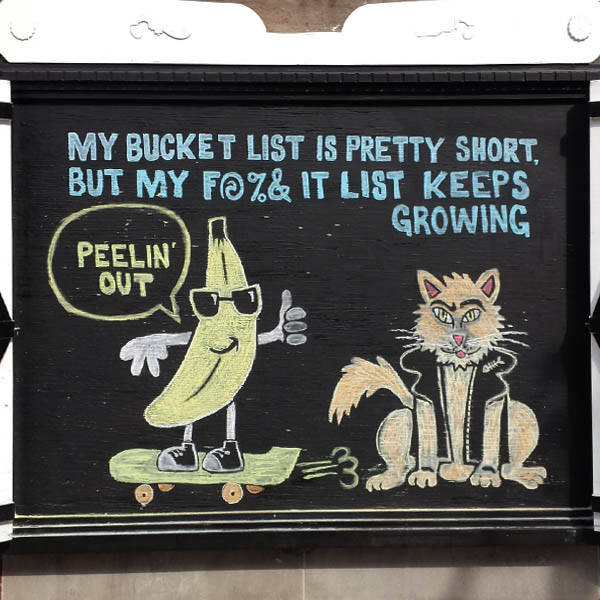 MY BUCKET LIST IS PRETTY SHORT,
BUT MY F@%& IT LIST KEEPS
GROWING
PEELIN'
OUT